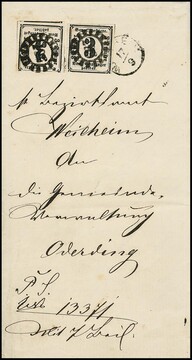 3
K. Bezirksamt
Weilheim
An
die Gemeinde-
Verwaltung
Oderding
P. S.
No. 13371
7 Beil.